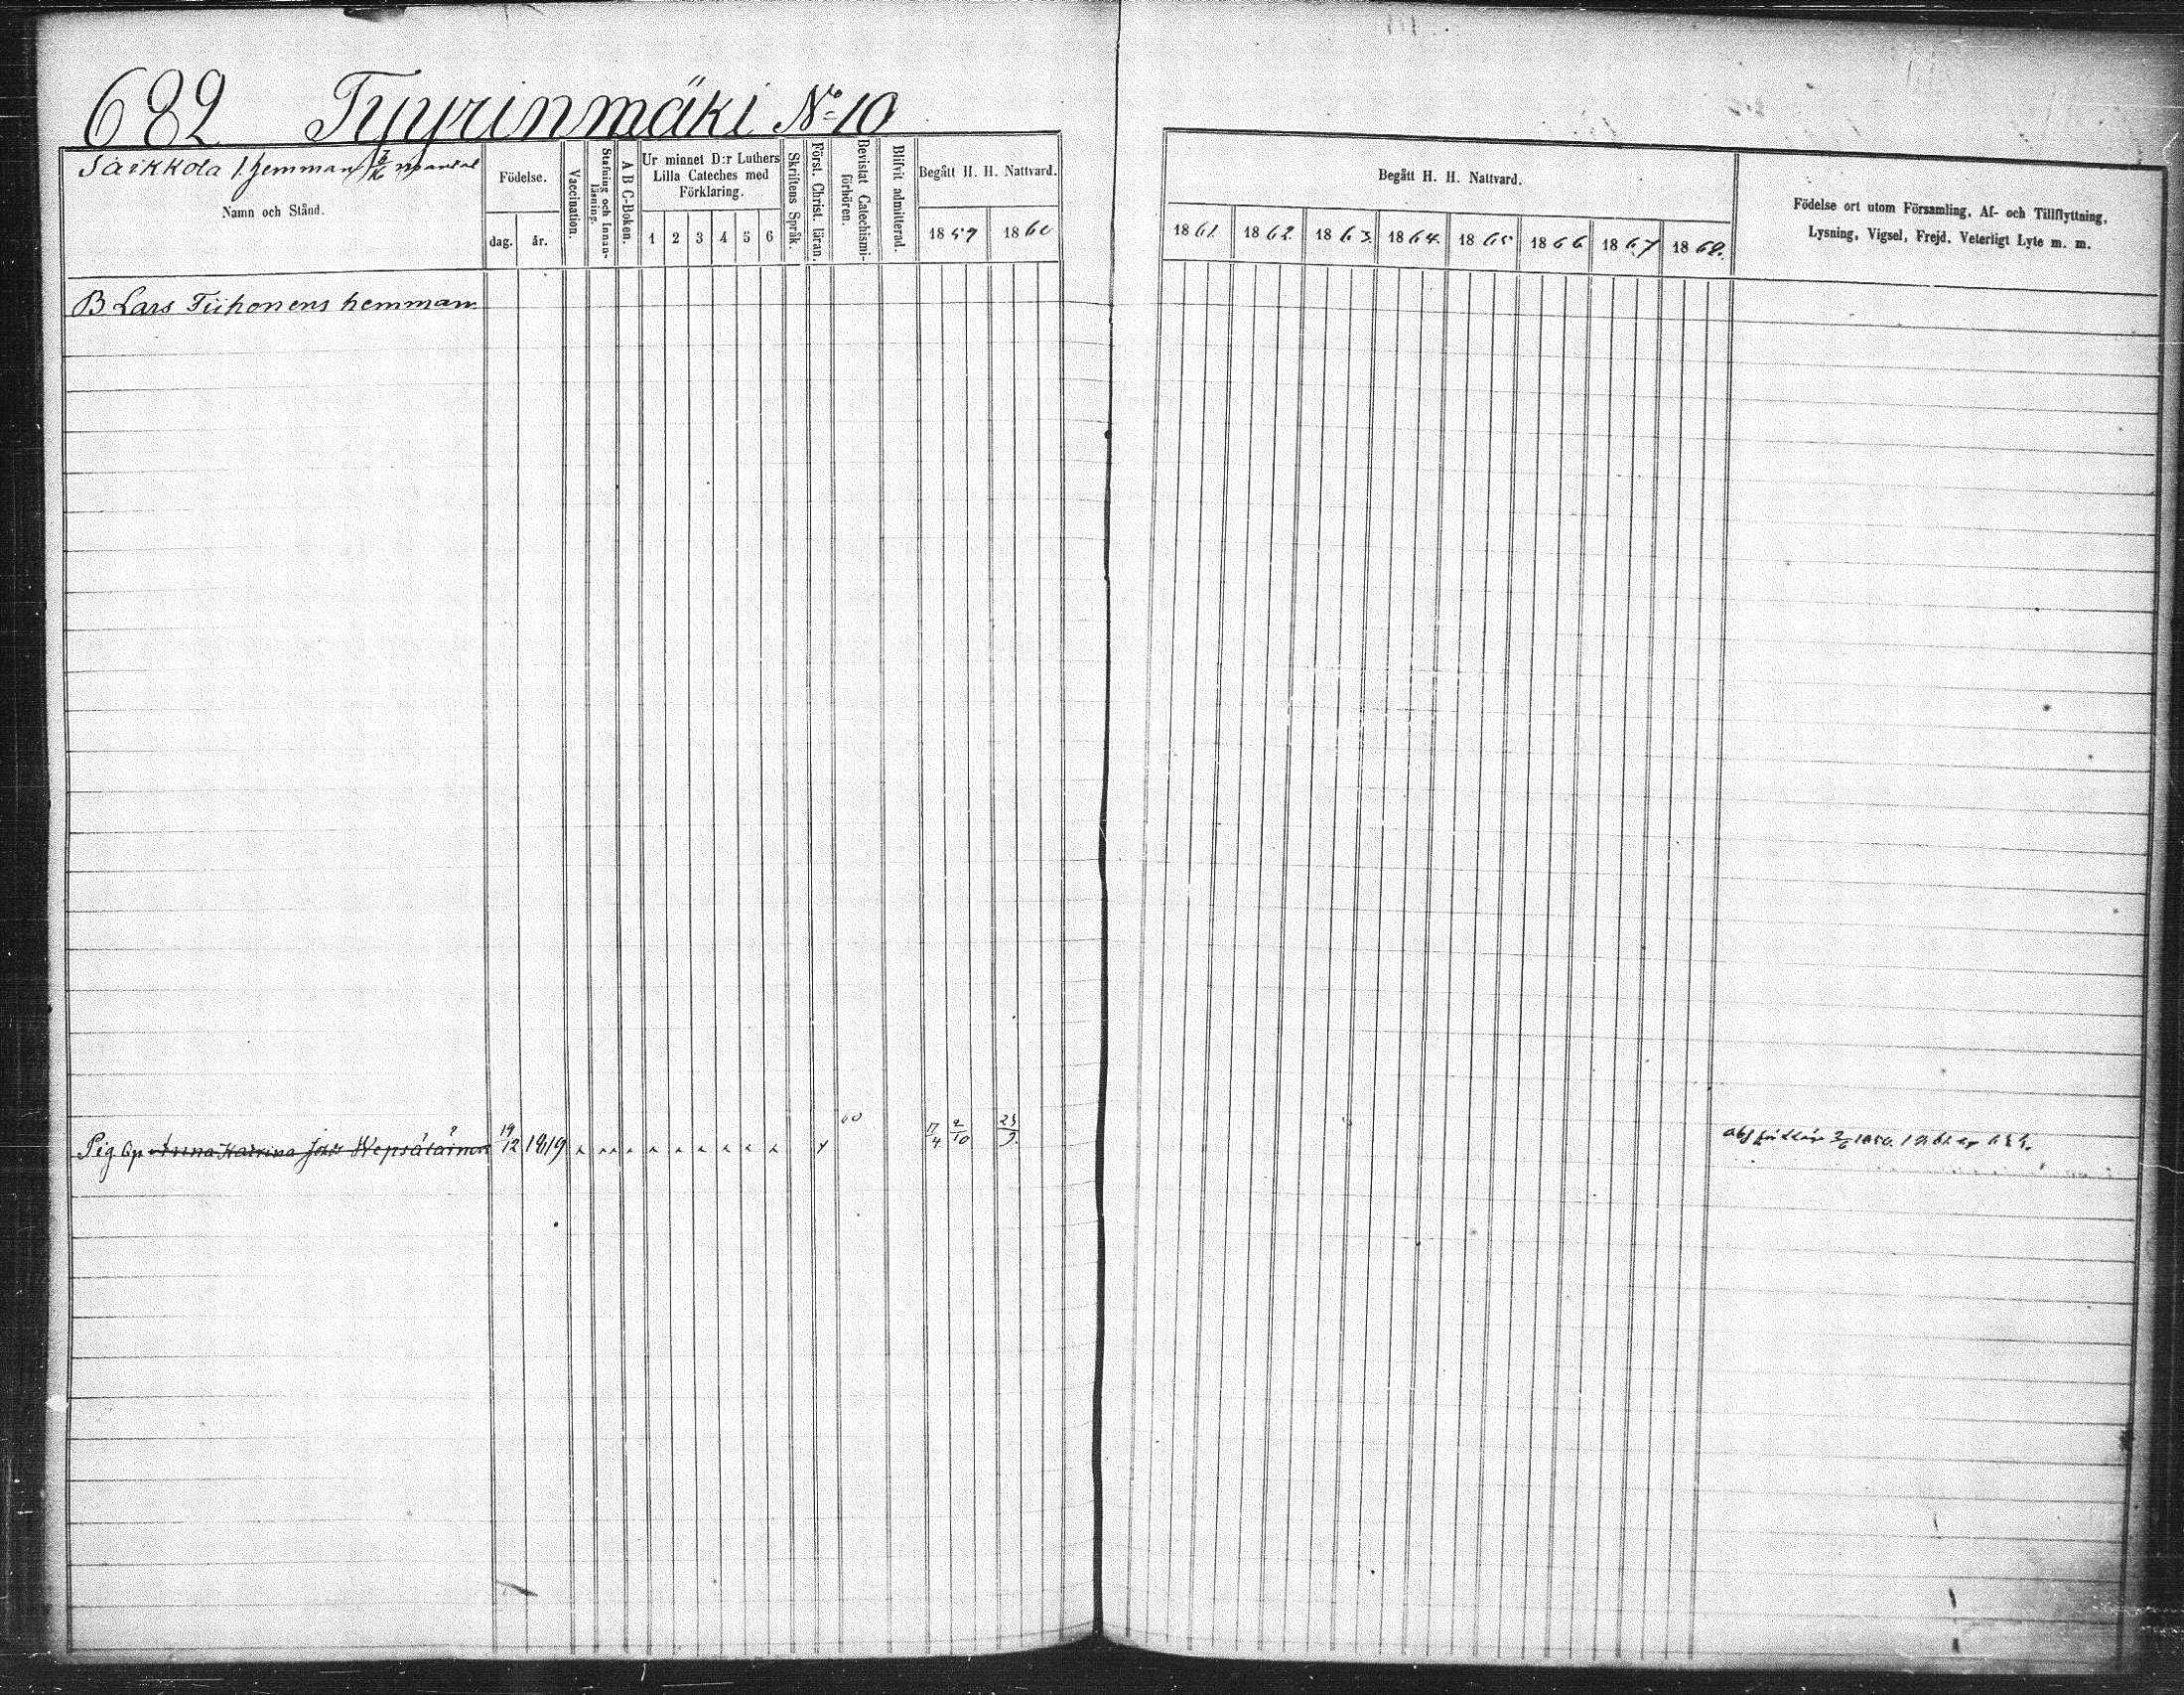 682 Tyyrinmäki No 10
Saikkola 1. Hemman 3/16 mantal
Namn och Stånd.
Födelse.
dag. år.
Vaccination.
Stafning och Innan-
läsning.
A B C-Boken.
Ur minnet D:r Luthers
Lilla Cateches med
Förklaring.
1 2 3 4 5 6
Skriftens Språk.
Först. Christ. läran.
Bevistat Catechismi-
förhören.
Blifvit admitterad.
Begått H. H. Nattvard.
1859 1860
Begått H. H. Nattvard.
1861. 1862. 1863. 1864. 1865 1866 1867 1868.
Födelse ort utom Församling, Af- och Tillflyttning,
Lysning, Vigsel, Frejd, Veterligt Lyte m. m.
B Lars Tiihonens hemman.
Pig Anna Katrina Wepsäläinen 19/12 1819 60 17/4 2/10 23/9.